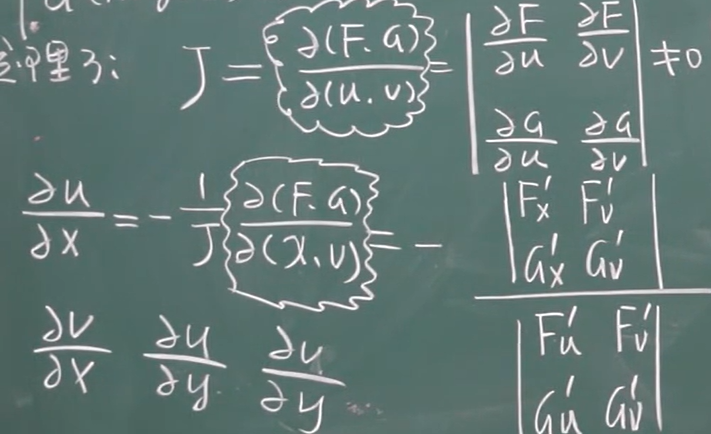 理3: J = ∂(F.G)/∂(u.v) = |∂F/∂u ∂F/∂v; ∂G/∂u ∂G/∂v| ≠0
∂u/∂x = - 1/J ∂(F.G)/∂(x.v) = - |F'x F'v; G'x G'v| / |F'u F'v; G'u G'v|
∂v/∂x ∂u/∂y ∂u/∂y